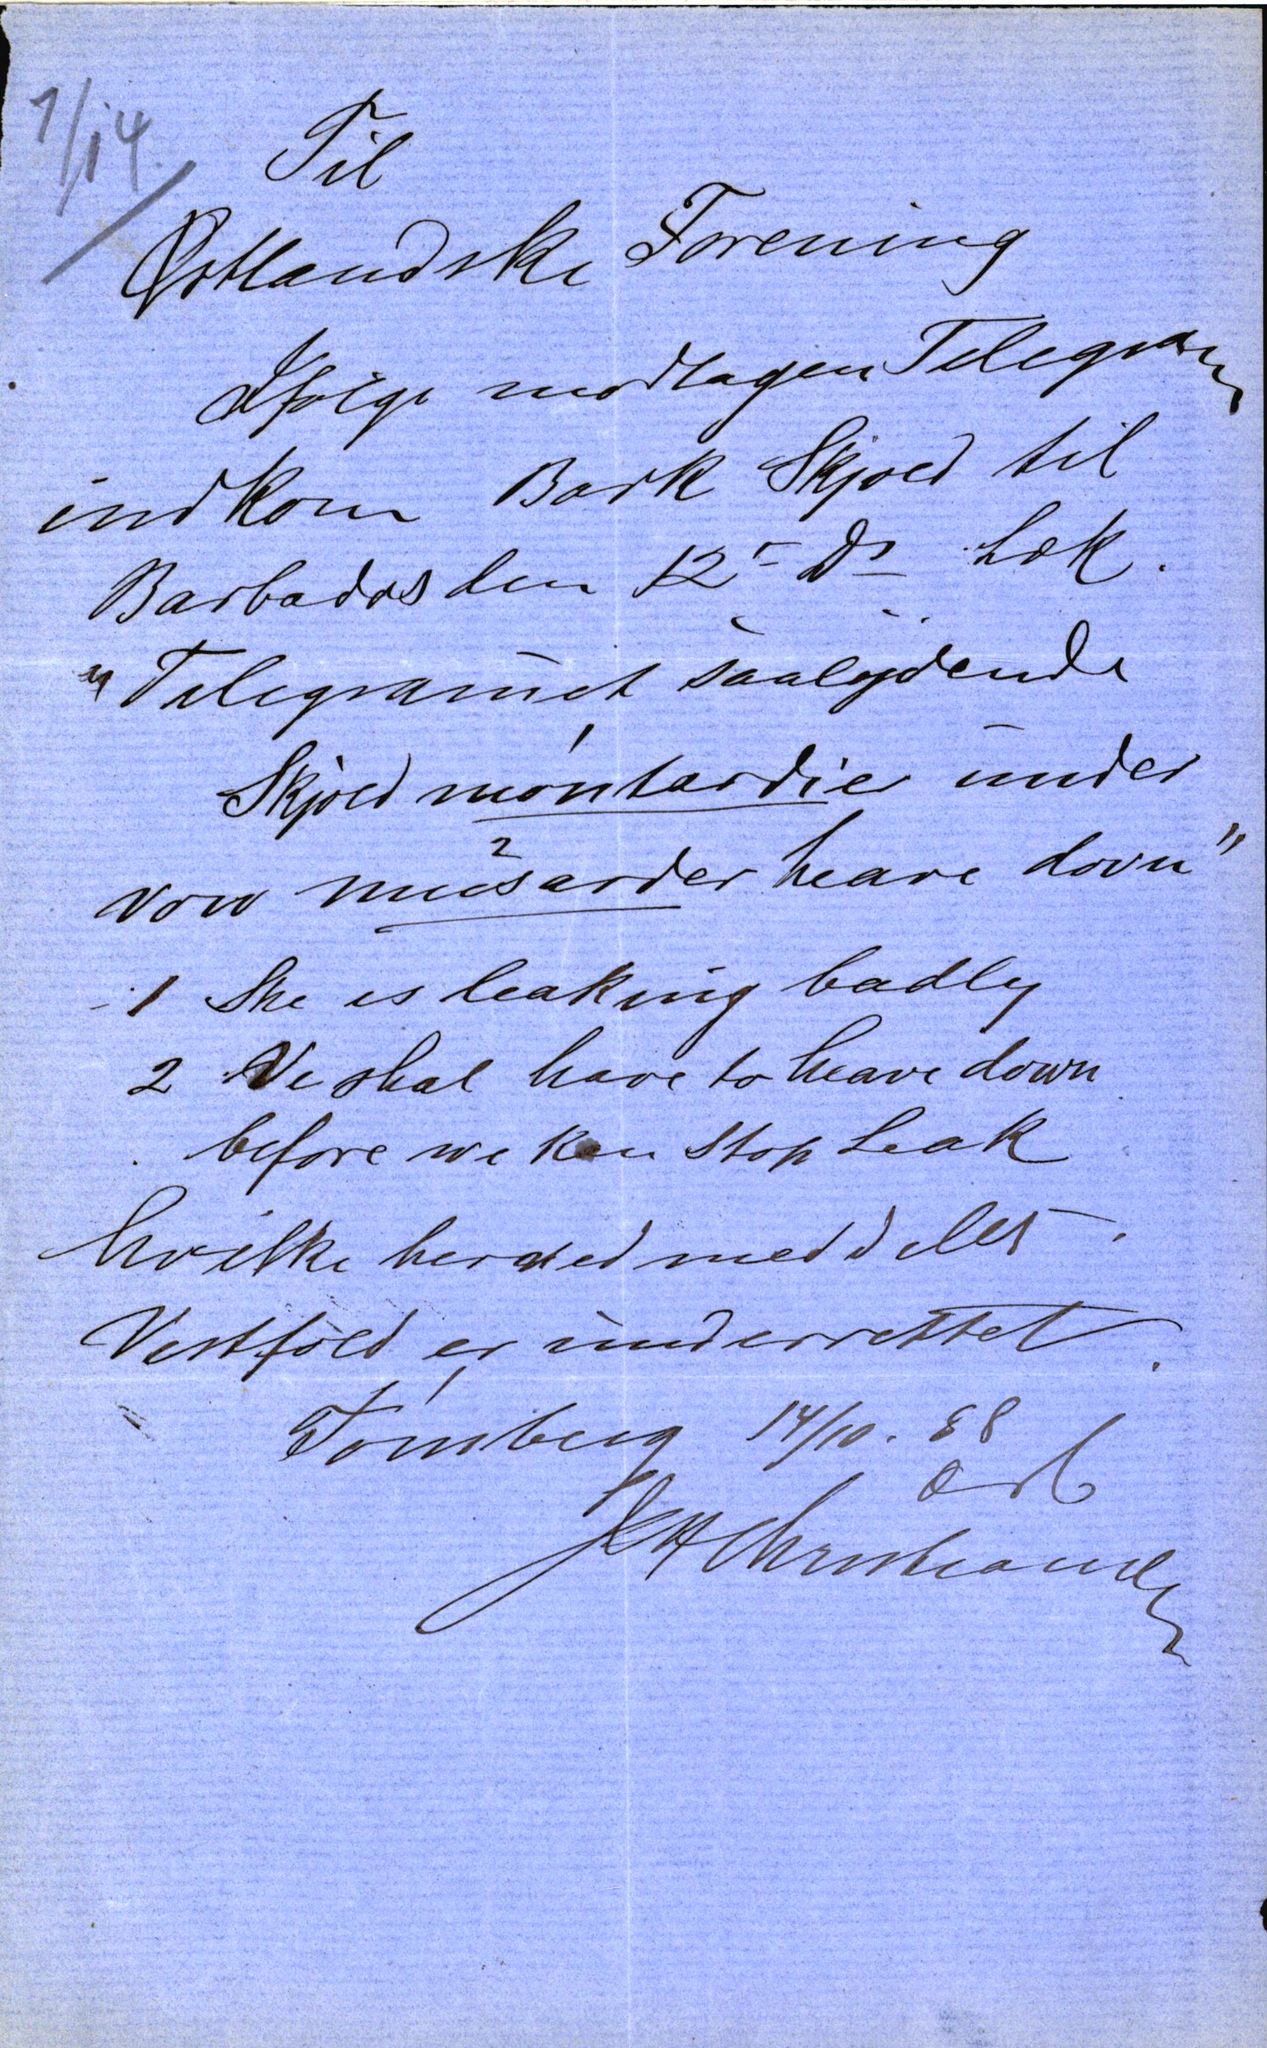 7/14.
Til
Østlandske Forening
Ifølge modtagen Telegram
indkom Bark Skjold til
Barbados den 12te Ds Læk.
"Telegramet saalydende
Skjold 1 montardier under
vow 2 musarder heave down"
1 She is leaking badly
2 We shal have to heave down
before we kan stop Leak
hvilke herved meddeles.
Vestfold er underrettet.
Tønsberg 14/10. 88
Ærb
Christiansen